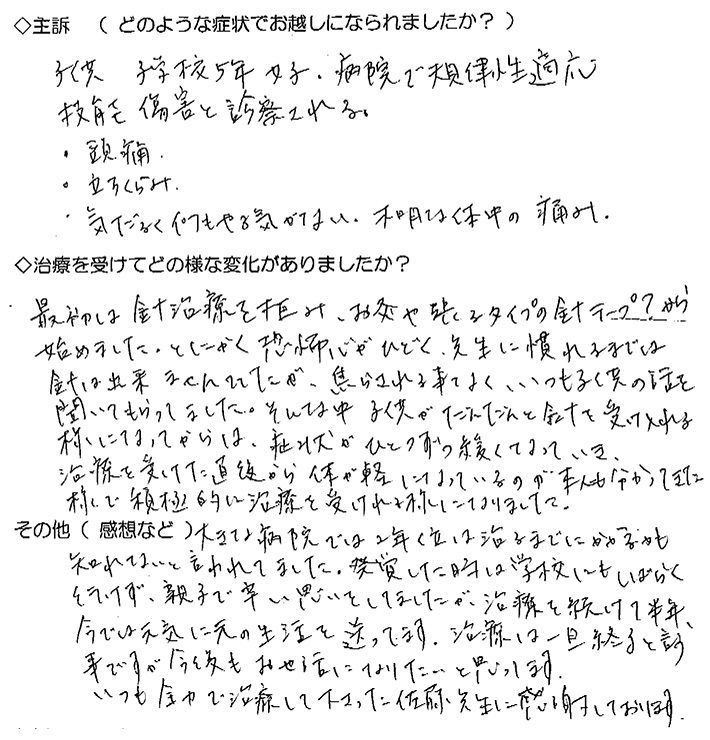 ◇主訴 （ どのような症状でお越しになられましたか？ ）
子供 小学校5年 女子。病院で起立性適応
技能 傷害と診察される。
・頭痛。
・立ちくらみ。
・気だるく何もやる気がない。不明な体中の痛み。
◇治療を受けてどの様な変化がありましたか？
最初は針治療を拒み、お灸や張るタイプの針テープ？から
始めました。とにかく恐怖心がひどく、先生に慣れるまでは
針は出来ませんでしたが、焦らされる事なく、いつも子供の話を
聞いてもらってました。そんな中 子供がだんだんと針を受け入れる
様になってからは、症状がひとつずつ緩くなっていき、
治療を受けた直後から体が軽くなっているのが本人も分かってきた
様で積極的に治療を受ける様になりました。
その他（ 感想など ）大きな病院では2年くらいは治るまでにかかるかも
知れないと言われてました。発覚した時は学校にもしばらく
行けず、親子で辛い思いをしてましたが、治療を続けて半年、
今では元気に元の生活を送ってます。治療は一旦終ると言う
事ですが今後もお世話になりたいと思ってます。
いつも全力で治療して下さった佐藤先生に感謝しております。